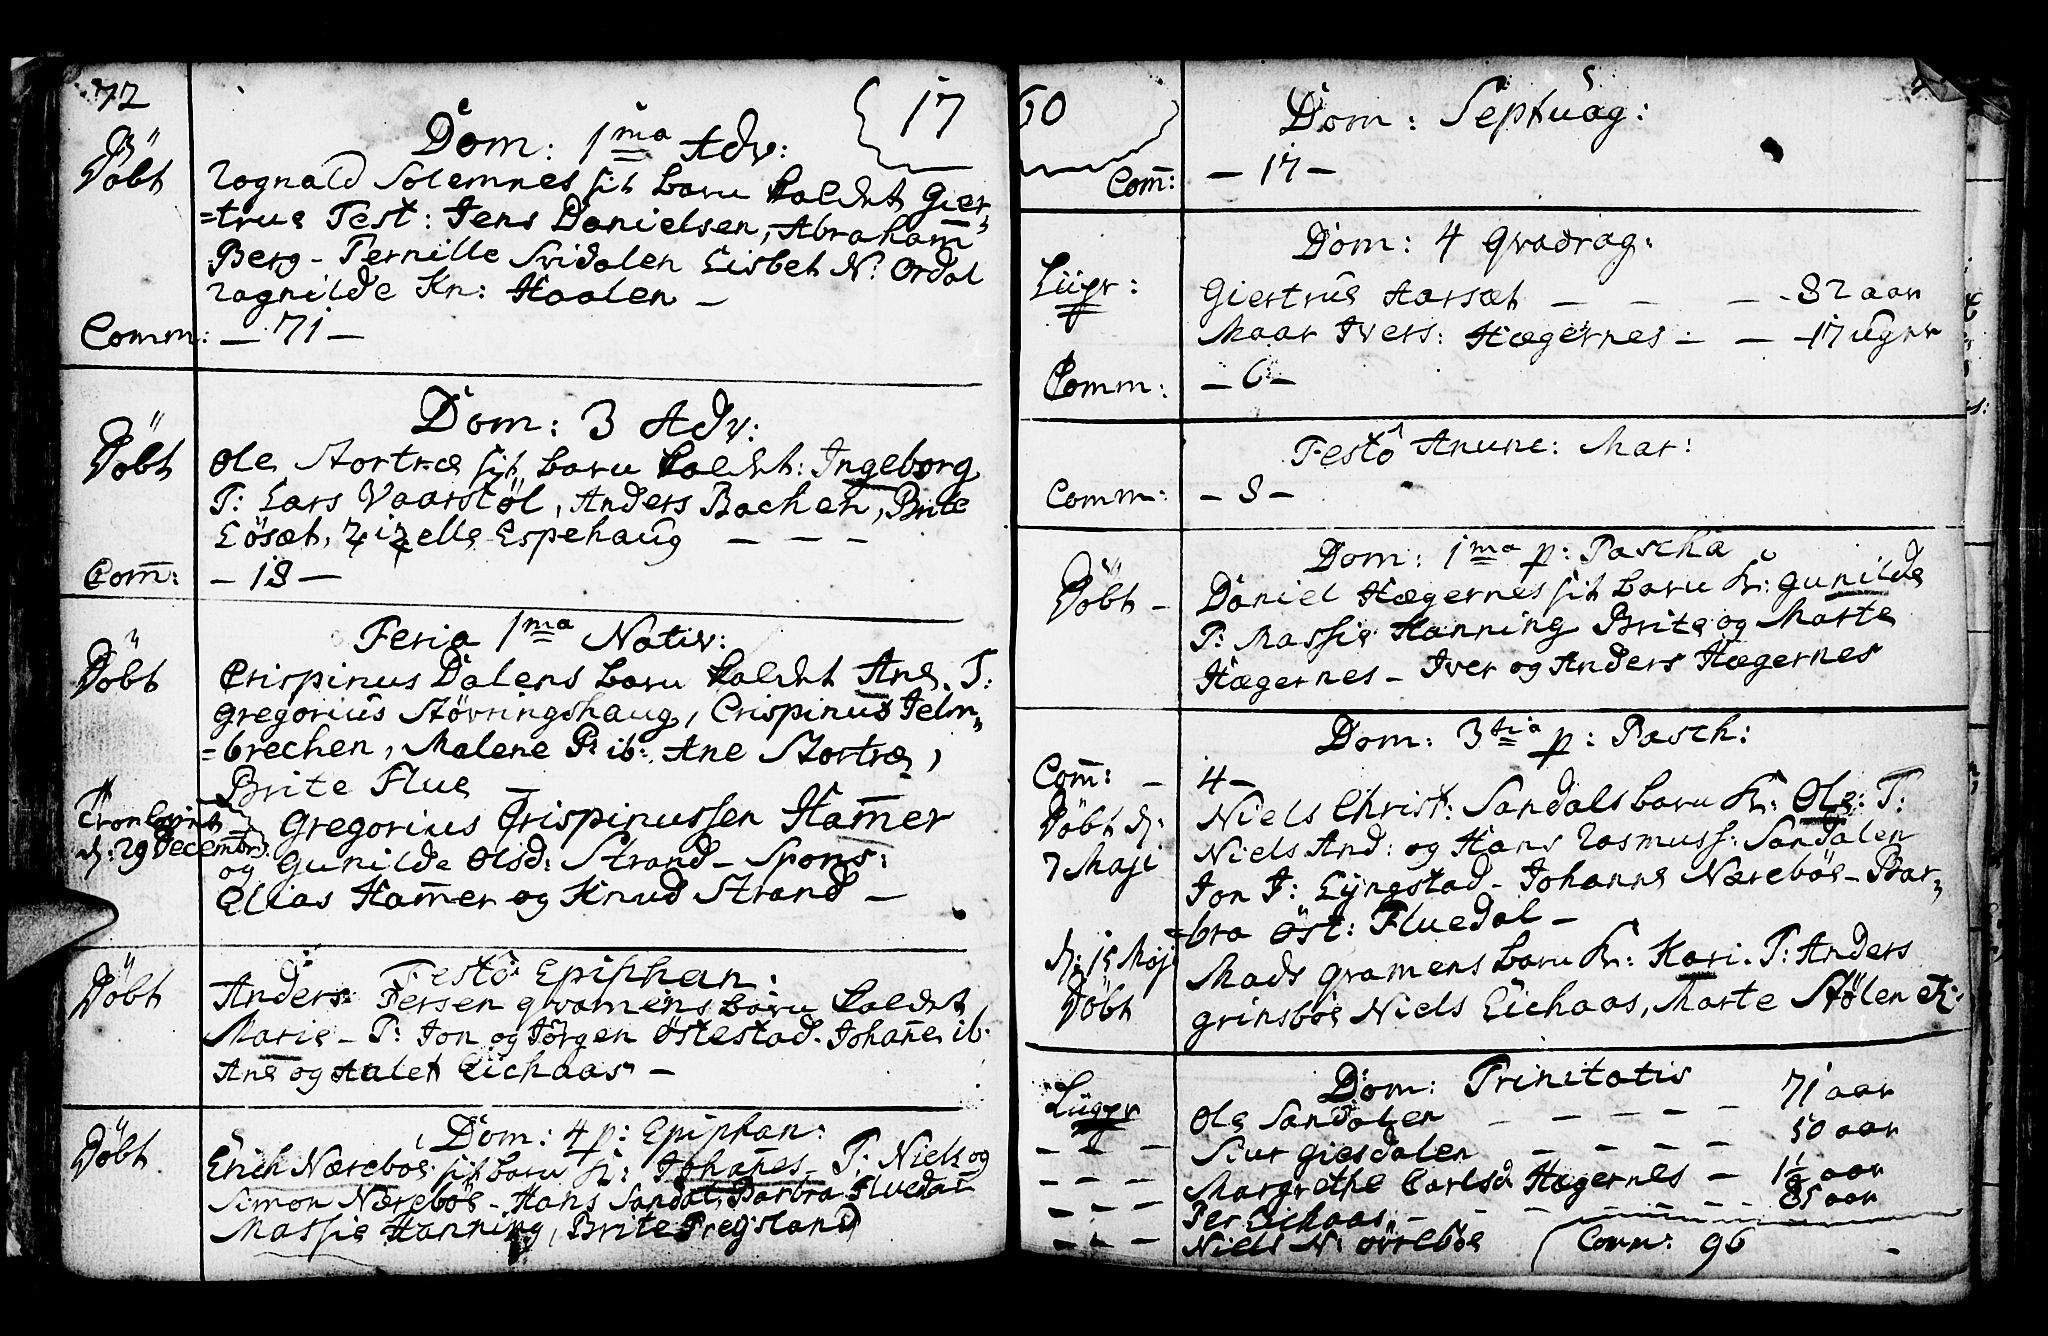 72
17
Dom: 1ma Adv:
Döbt
Rognald Solemnes sit barn kaldet Gier-
=true Test: Jens Danielsen, Abraham
Berg - Pernille Svidalen Lisbet N: Ordal
Ragnilde Kn: Haalen -
Comm: - 71 -
Dom: 3 Adv:
Döbt
Ole Stortræ sit barn kaldet: Ingeborg
T: Lars Vaarstöl, Anders Bachen, Brite
Lösæt, Zizelle Espehaug - - -
Com: - 18 -
Feria 1ma Nativ:
Döbt
Crispinus Dalens barn kaldet Ane. T:
Gregorius Störringshaug, Crispinus Jelm-
=brechen, Malene P: ib: Ane Stortræ,
Brite Flue -
Gregorius Crispinussen Hamer
d: 29 Decembr:
og Gunilde Olsd: Strand - Spons:
Elias Hamer og Knud Strand -
Festo Epiphan:
Döbt
Anders Persen Gramens barn kaldet
Marie - T: Jon og Jörgen Östestad. Johane ib.
Ane og Aalet Eichaas -
Dom: 4 p: Epiphan:
Döbt
Erich Nærebøe sit barn k: Johanes - T: Niels og
Simon Nærebøe - Hans Sandal, Barbra Fluedal
Massie Hanning, Brite Pregsland
60
Dom: Septuag:
Com: - 17 -
Dom: 4 Qvadrag:
Liigr:
Giertrue Aarsæt - - - 82 aar
Maar Ivers: Hægernes - - 17 uger
Comm: - 6 -
Festo Anunc: Mar:
Comm: - 8 -
Dom: 1ma p: Pascha
Döbt -
Daniel Hægernes sit barn k: Gunilde
T: Massie Hanning Brite og Marte
Hægernes - Iver og Anders Hægernes
Dom: 3tia p: Pasch:
Com: - 4 -
Döbt d:
7 Maji
Niels Christ: Sandals barn k: Ole: T:
Niels And: og Hans Rasmuss: Sandalen
Jon J: Lyngstad - Johanne Nærebøe - Bar-
=bra Öst: Fluedal -
d: 15 Maj
Döbt
Mads Gramens barn k: Kari. T: Anders
Grinsbøe Niels Eichaas, Marte Stølen etc:
Dom: Trinitatis
Liigr
Ole Sandalen - - - - - 71 aar
Siur Giesdalen - - - - 50 aar
Margrethe Carlsd Hægernes - 1½ aar
Per Eichaas - - - - - 85 aar
Niels N: Ourebøe
Comm: 96